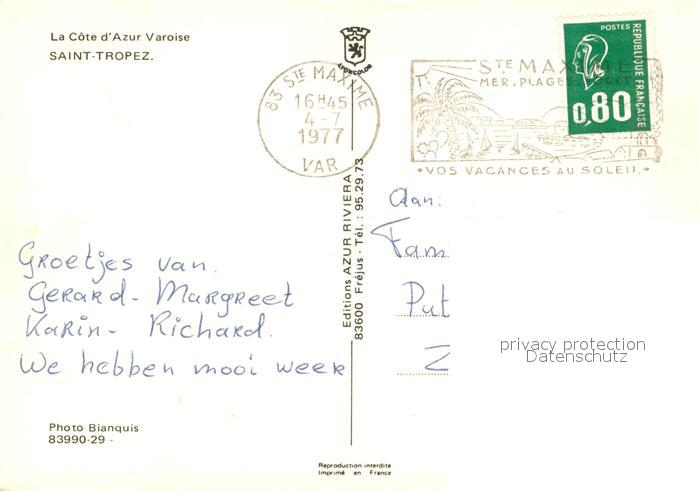 La Côte d'Azur Varoise
SAINT-TROPEZ.
LYONCOLOR
83 STE MAXIME
16H45
4-7
1977
VAR
STE MAXIME
MER. PLAGES. FORET
•VOS VACANCES AU SOLEIL.•
POSTES
RÉPUBLIQUE FRANÇAISE
0,80
Aan:
Fam
Put
Z
Groetjes van.
Gerard - Margreet
Karin - Richard.
We hebben mooi weer
Editions AZUR RIVIERA
83600 Fréjus - Tél. : 95.29.73
privacy protection
Datenschutz
Photo Bianquis
83990-29 -
Reproduction interdite
Imprimé en France